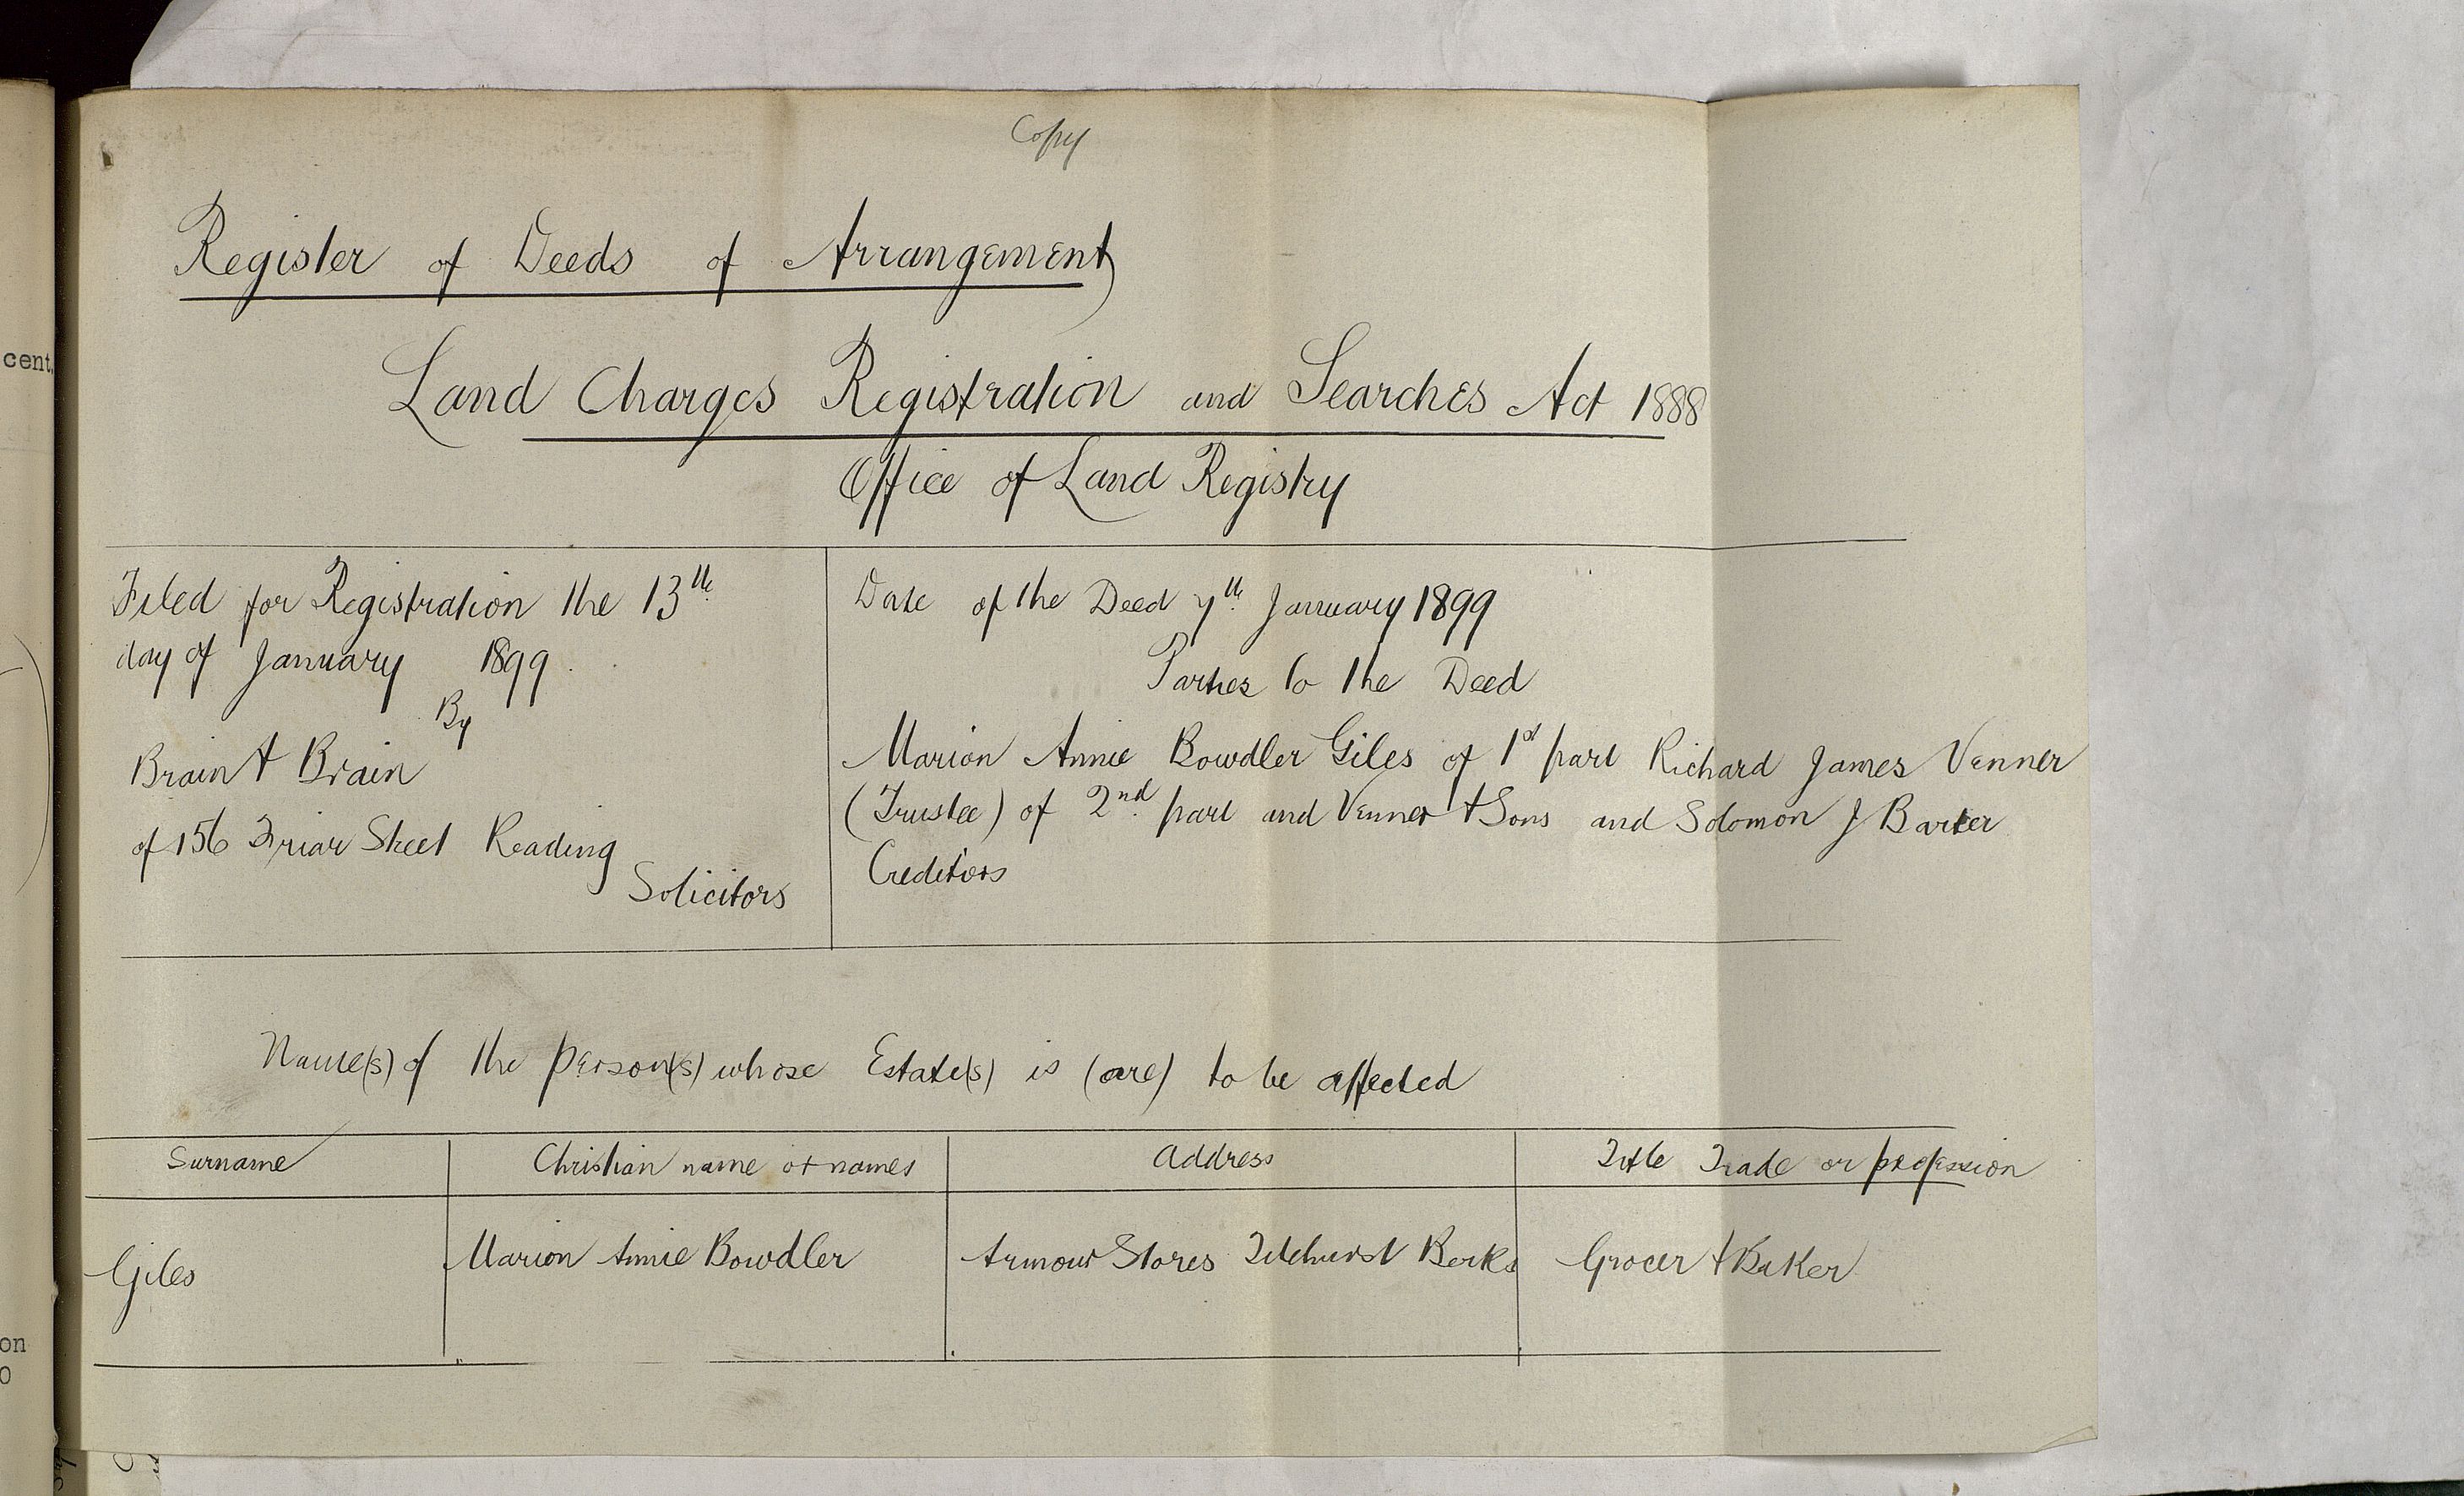 Copy
Register of Deeds of Arrangement
Land Charges Registration and Searches Act 1888
Office of Land Registry
Filed for Registration the 13th
day of January 1899.
By
Brain & Brain
of 156 Friar Street Reading
Solicitors
Date of the Deed 7th January 1899
Parties to the Deed
Marion Annie Bowdler Giles of 1st part Richard James Venner
(Trustee) of 2nd part and Venner & Sons and Solomon J Barter
Creditors
Name(s) of the Person(s) whose Estate(s) is (are) to be affected
Surname
Christian name or names
Address
Title Trade or profession
Giles
Marion Annie Bowdler
Armour Stores Tilehurst Berks
Grocer & Baker
cent.
on
0